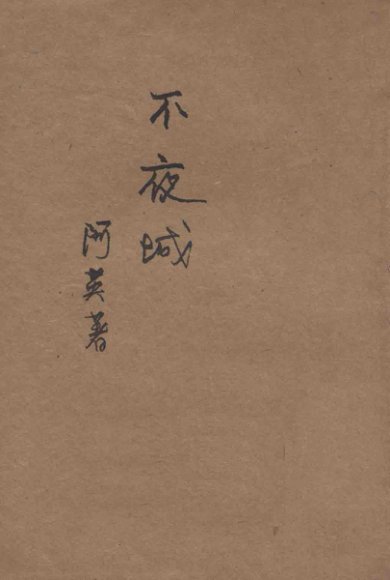 不夜城
阿英著